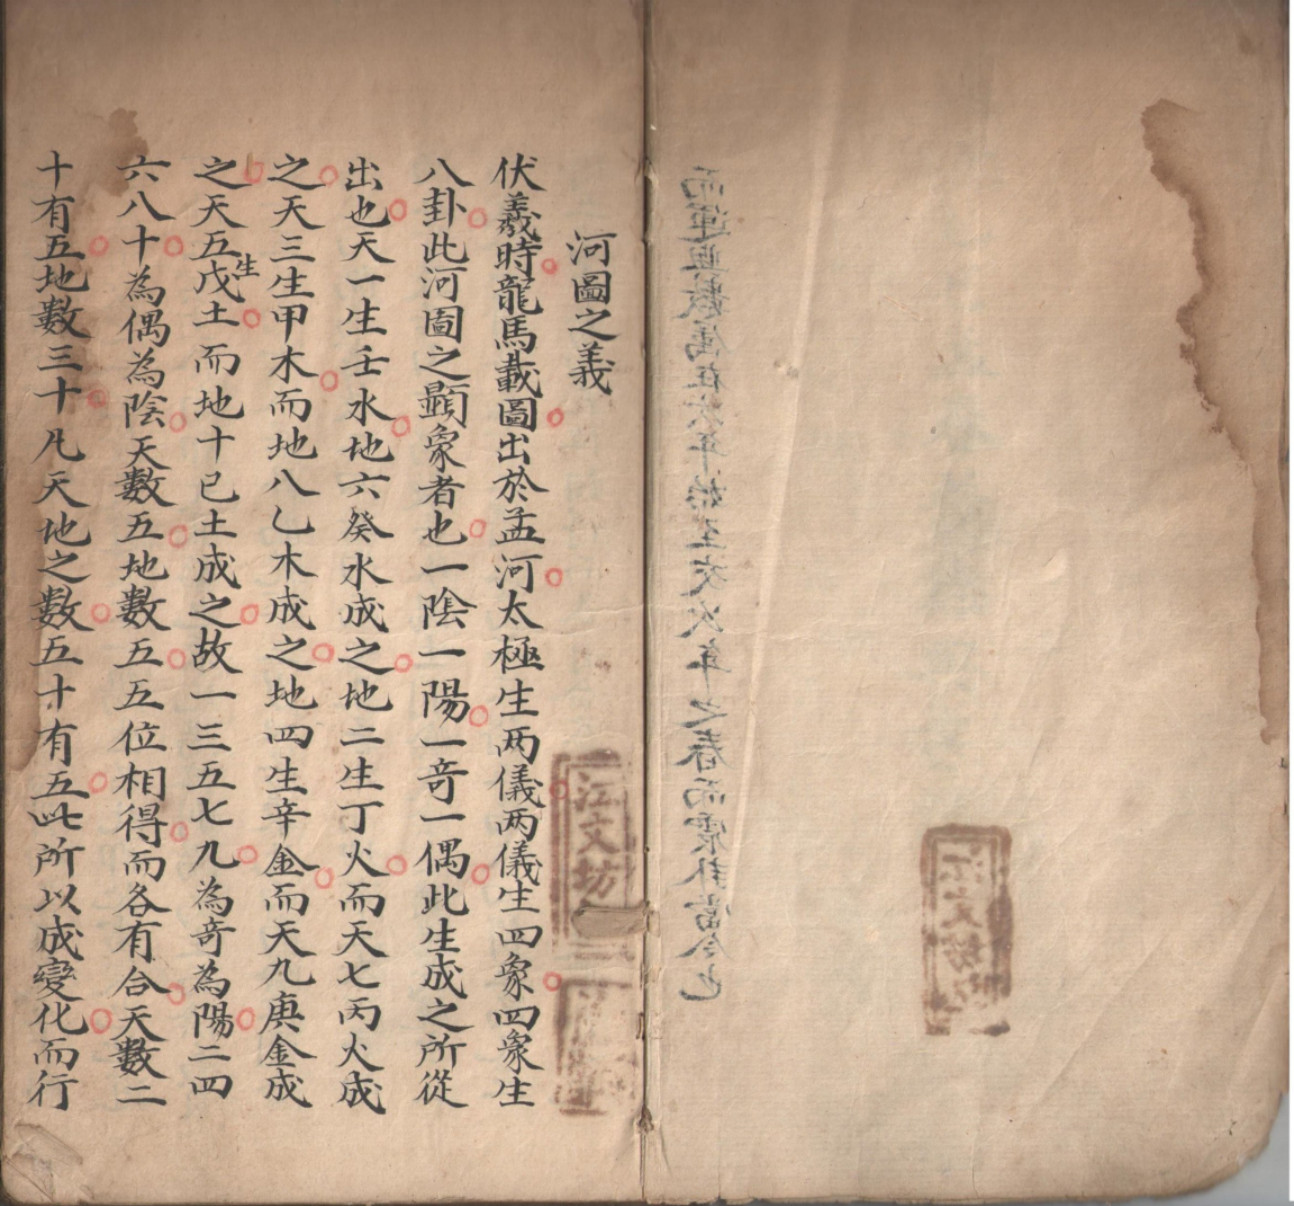 河圖之義
伏羲時龍馬載圖出於孟河太極生两儀两儀生四象四象生
八卦此河圖之顯象者也一陰一陽一竒一偶此生成之所從
出也天一生壬水地六癸水成之地二生丁火而天七丙火成
之天三生甲木而地八乙木成之地四生辛金而天九庚金成
之天五生戊土而地十己土成之故一三五七九為竒為陽二四
六八十為偶為陰天數五地數五五位相得而各有合天數二
十有五地數三十凡天地之數五十有五此所以成變化而行
江文坊